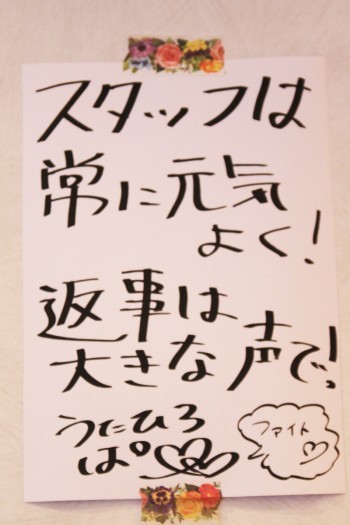 スタッフは
常に元気
よく!
返事は
大きな声で!
うにひろ
ぱ。
ファイト